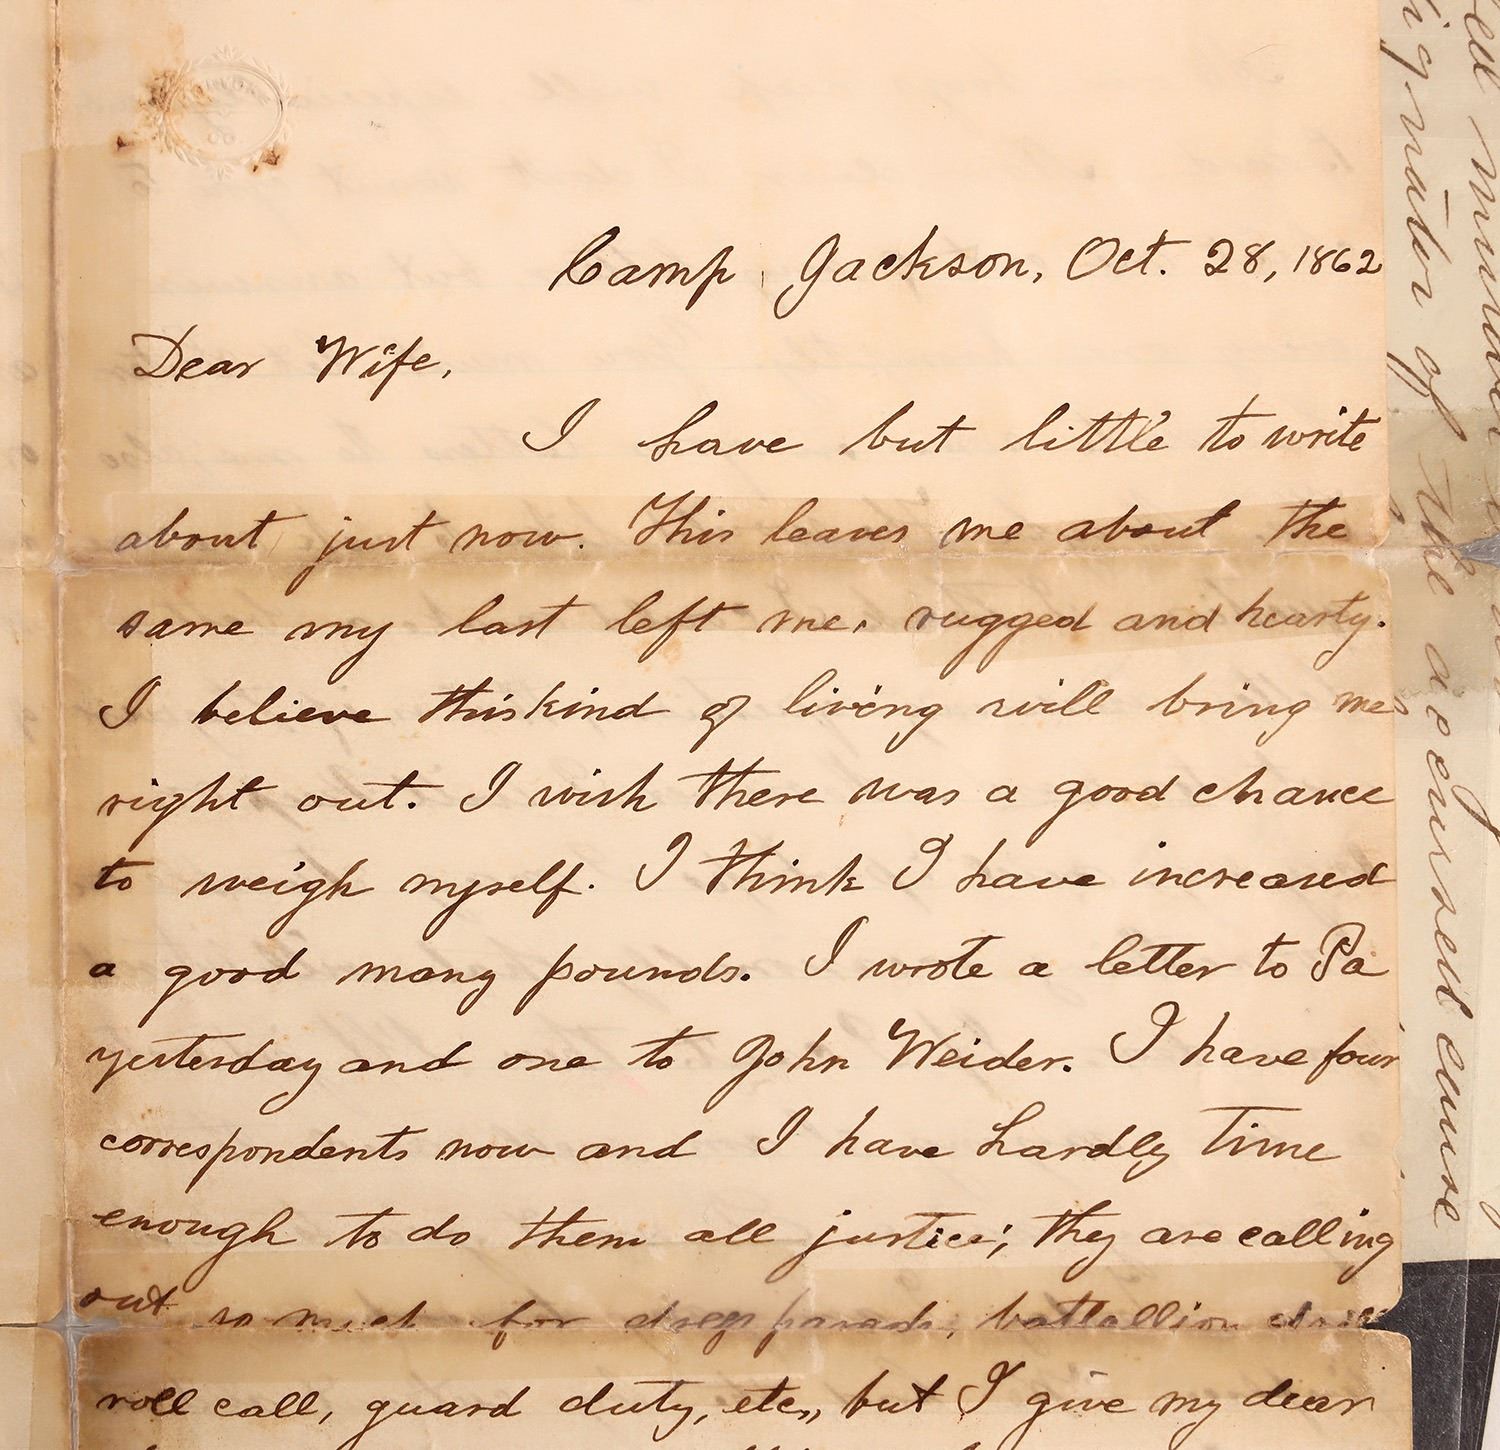 Camp Jackson, Oct. 28, 1862
Dear Wife,
I have but little to write
about just now. This leaves me about the
same my last left me, rugged and hearty.
I believe this kind of living will bring me
right out. I wish there was a good chance
to weigh myself. I think I have increased
a good many pounds. I wrote a letter to Pa
yesterday and one to John Weider. I have four
correspondents now and I have hardly time
enough to do them all justice; they are calling
out so much for dress parade, battallion drill
roll call, guard duty, etc., but I give my dear
ignator of the accursed cause